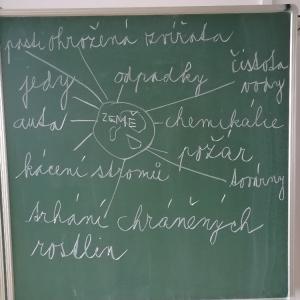 pasti ohrožená zvířata
čistota
vody
jedy
odpadky
auta
ZEMĚ
chemikálie
požár
kácení stromů
továrny
trhání chráněných
rostlin